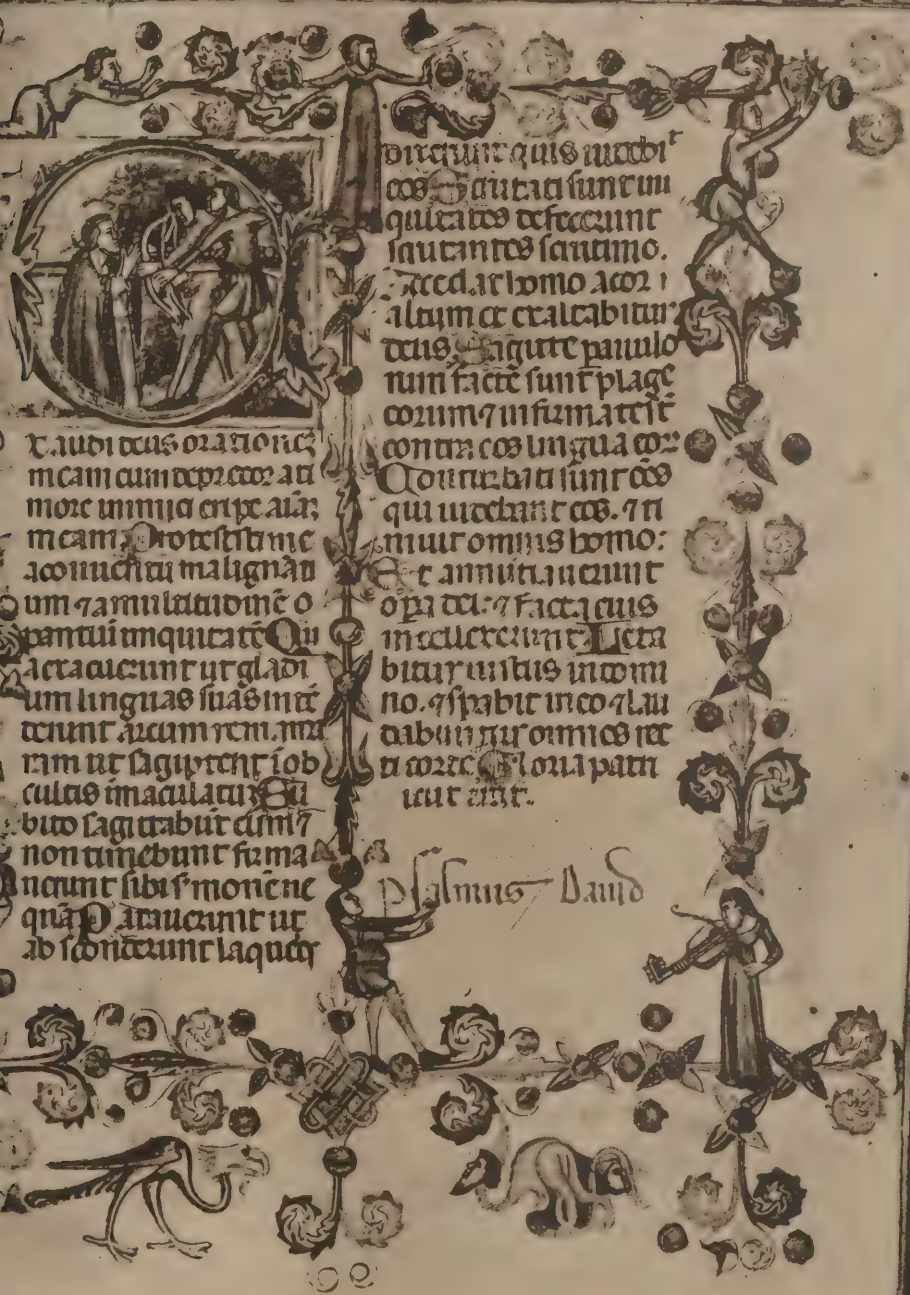 xaudi deus orationez
meam cum deprecor a ti
more inimici eripe aīaz
meam Protexisti me
a conuentu malignāti
um ⁊ a multitudinē o
pantiū iniquitatē Qui
a exacuerunt ut gladi
um linguas suas intē
derunt arcum rem ama
ram ut sagiptent ī ob
cultis īmaculatuz Su
bito sagittabūt eum ⁊
non timebunt firma
uerunt sibi s'monē ne
quā Narauerunt ut
absconderunt laqueos
dixerunt quis uidebit
eos Scrutati sunt ini
quitates defecerunt
scrutantes scrutinio.
Accedat homo a cor
altum et exaltabitur
deus Sagitte paruulo
rum facte sunt plage
eorum ⁊ infirmate s̄t
contra eos lingua eor
Conturbati sunt oēs
qui uidebant eos. ⁊ ti
muit omnis homo:
Et annūtiauerunt
opa dei: ⁊ facta eius
intellexerunt Leta
bitur iustus in domi
no. ⁊ spabit in eo ⁊ lau
dabuntur omnes rec
ti corde Gloria patri
sicut erat.
psalmus Dauid